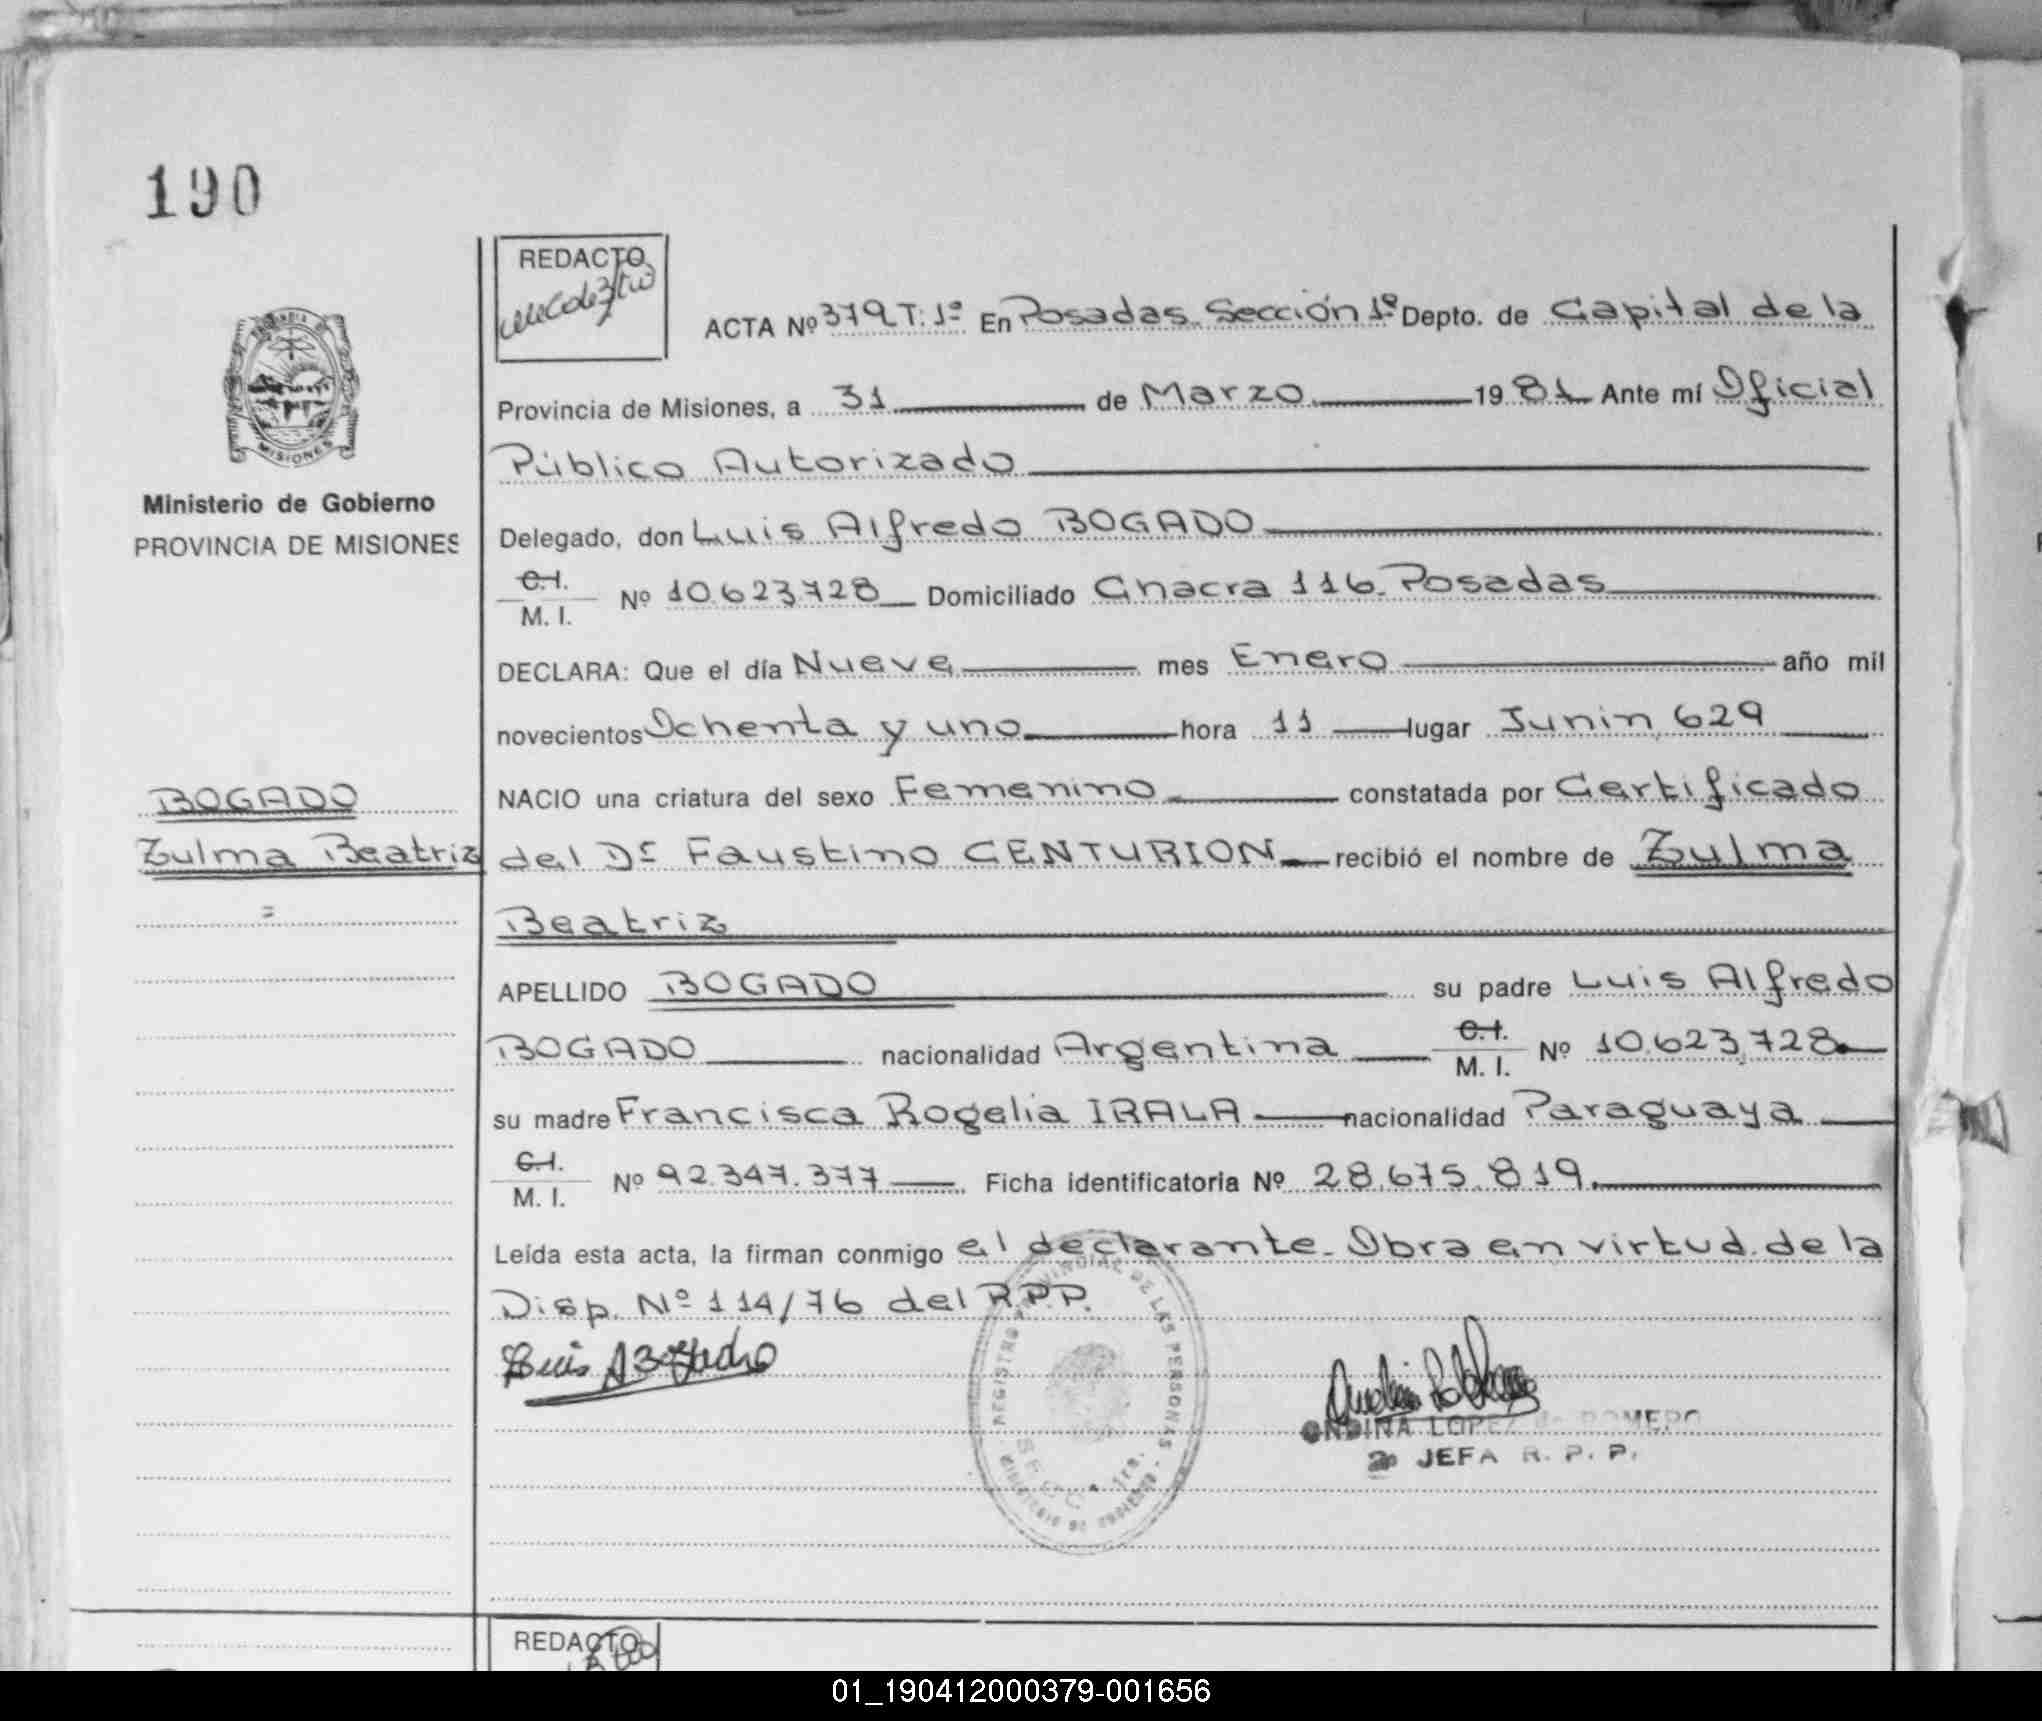 190
REDACTO
ACTA Nº 379 T: 1º En Posadas. Sección 1º Depto. de Capital de la
Provincia de Misiones, a 31 de Marzo 1981 Ante mí Oficial
Público Autorizado
Delegado, don Luis Alfredo BOGADO
C.I.
M. I. Nº 10.623.728 Domiciliado Chacra 116. Posadas
DECLARA: Que el día Nueve mes Enero año mil
novecientos Ochenta y uno hora 11 lugar Junin 629
NACIO una criatura del sexo Femenino constatada por Certificado
del Dr Faustino CENTURION recibió el nombre de Zulma
Beatriz
APELLIDO BOGADO su padre Luis Alfredo
BOGADO nacionalidad Argentina C.I.
M. I. Nº 10.623.728
su madre Francisca Rogelia IRALA nacionalidad Paraguaya
C.I.
M. I. Nº 92.347.377 Ficha identificatoria Nº 28.675.819.
Leída esta acta, la firman conmigo el declarante. Obra en virtud de la
Disp. Nº 114/76 del R.P.P.
Luis A Bogado
REGISTRO PROVINCIAL DE LAS PERSONAS
SECC. 1ra.
MINISTERIO DE GOBIERNO
ONDINA LOPEZ de ROMERO
JEFA R. P. P.
MISIONES
Ministerio de Gobierno
PROVINCIA DE MISIONES
BOGADO
Zulma Beatriz
=
REDACTO
01_190412000379-001656